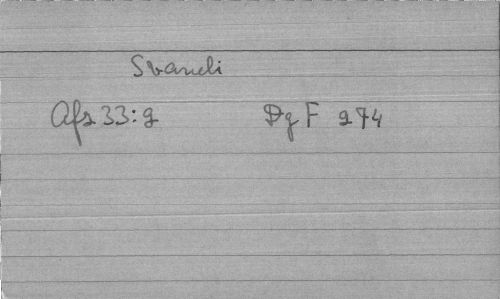 Svandi
Afs 33:2 DgF 274